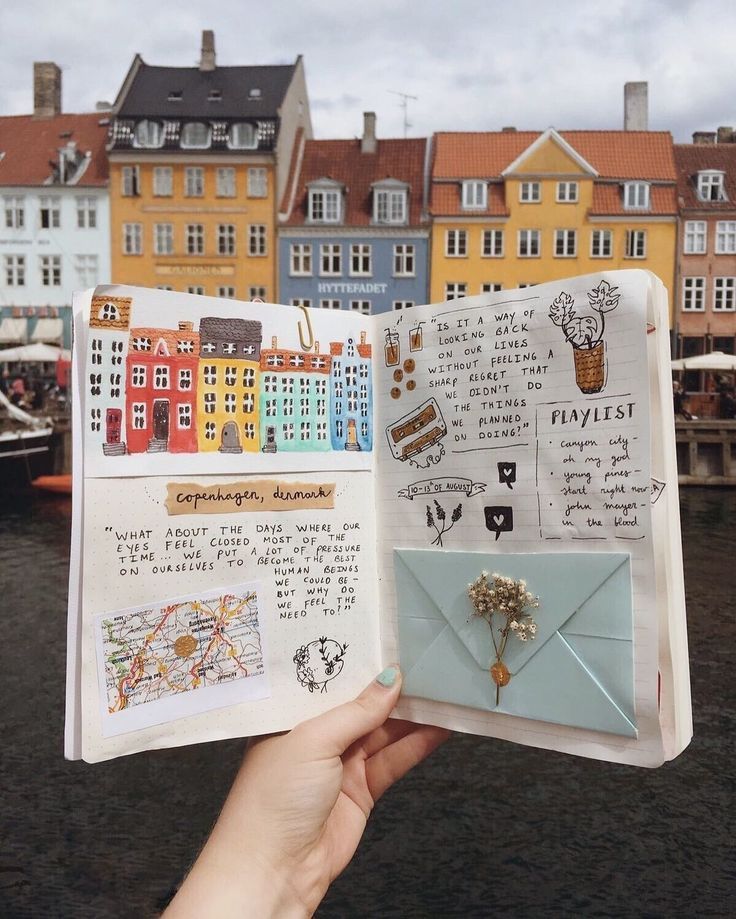 HYTTEFADET
copenhagen, denmark
"WHAT ABOUT THE DAYS WHERE OUR
EYES FEEL CLOSED MOST OF THE
TIME... WE PUT A LOT OF PRESSURE
ON OURSELVES TO BECOME THE BEST
HUMAN BEINGS
WE COULD BE-
BUT WHY DO
WE FEEL THE
NEED TO?"
"IS IT A WAY OF
LOOKING BACK
ON OUR LIVES
WITHOUT FEELING A
SHARP REGRET THAT
WE DIDN'T DO
THE THINGS
WE PLANNED
ON DOING?"
10-13th OF AUGUST
PLAYLIST
• canyon city-
oh my god
• young pines-
start right now
• john mayer-
in the blood